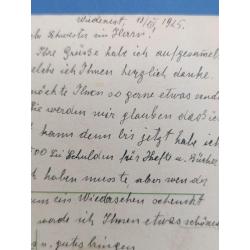 Wiedenest, 11/III, 1925.
Schwester im Herrn!
Ihre Grüße hab ich aufgesammelt
ich Ihnen herzlich danke.
möchte Ihnen so gerne etwas
Sie werden mir glauben daß ich
kann denn bis jetzt hab ich
500 Lei Schulden für Hefte u. Bücher
ich haben musste, aber wen der
uns ein Wiedersehen schenkt
werde ich Ihnen etwas schönes
u. gutes bringen